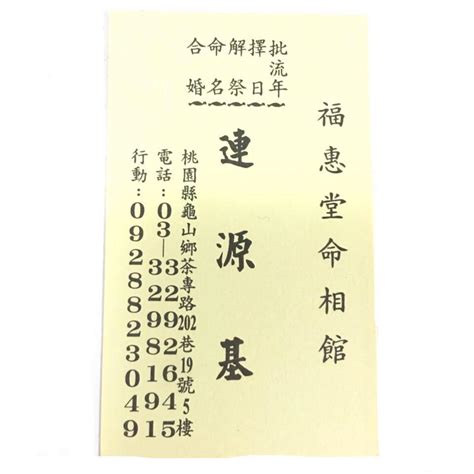 福惠堂命相館
批流年
擇日
解祭
命名
合婚
連源基
桃園縣龜山鄉茶專路202巷19號5樓
電話：03—3292645
3298191
行動：0928823049